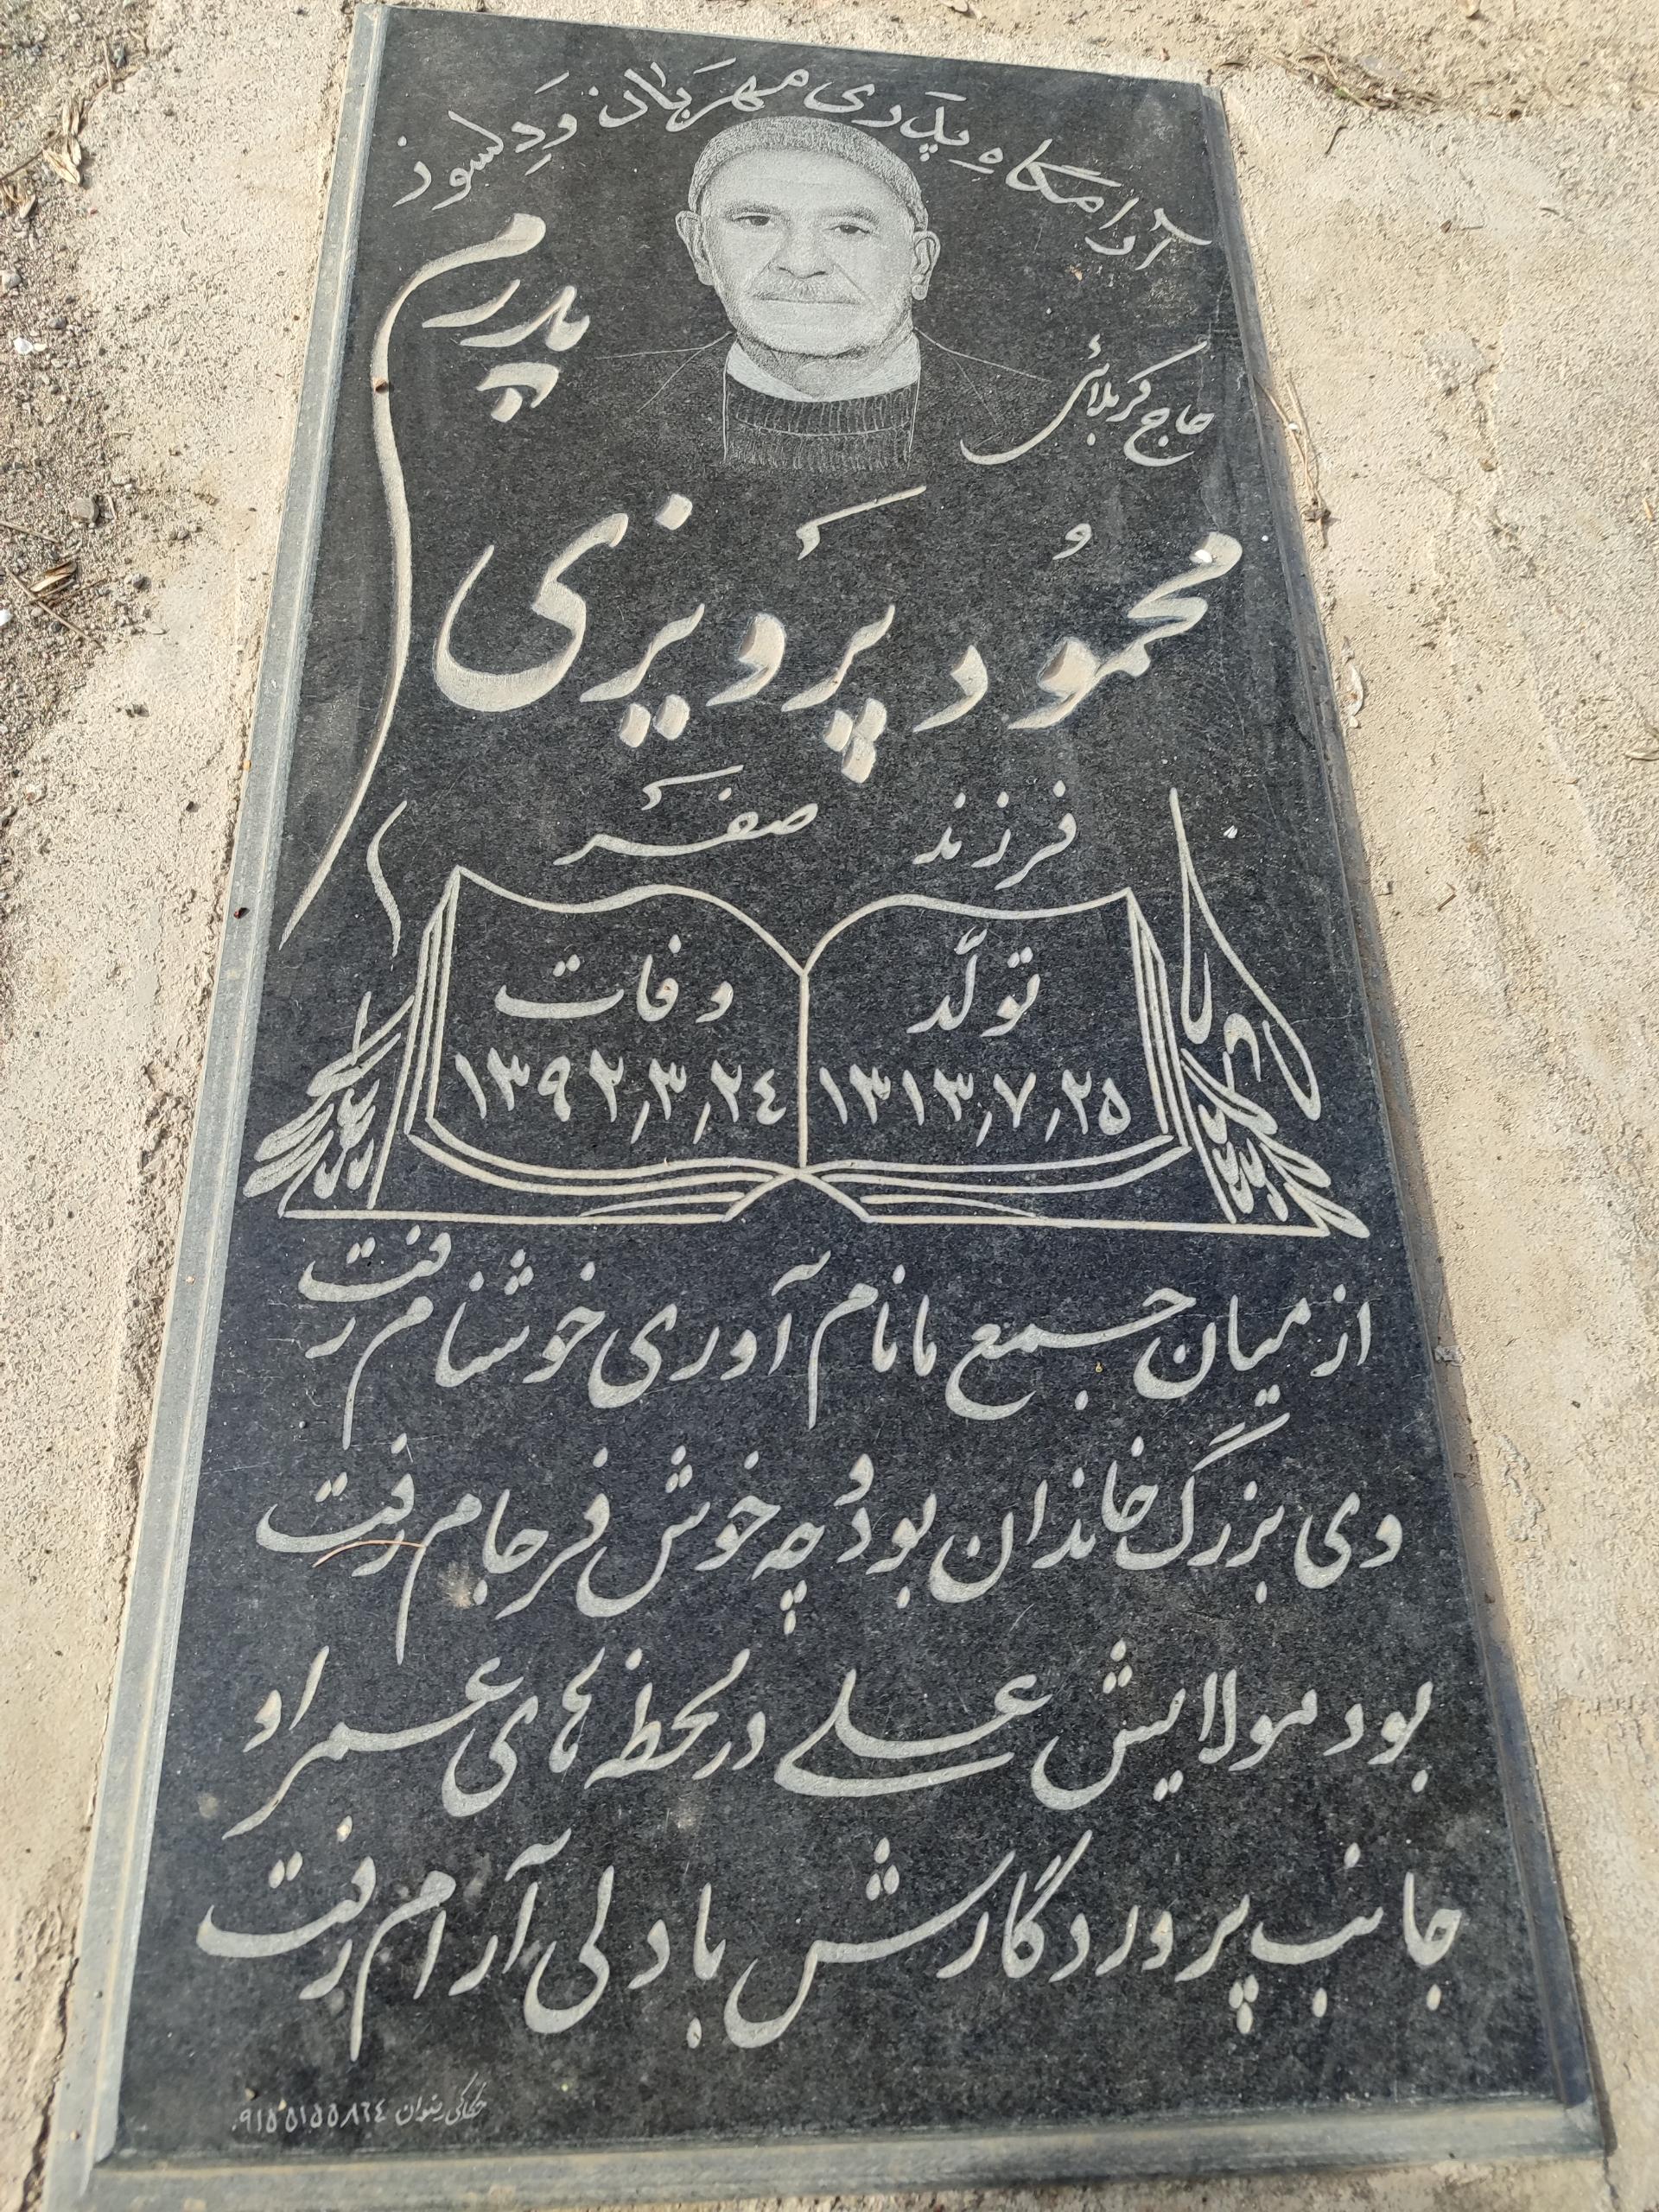 آرامگاه پدری مهربان و دلسوز
پدرم
حاج کربلائی
محمُود پَرویزی
فرزند صفَر
تولّد وفات
۱۳۱۳٫۷٫۲۵ ۱۳۹۲٫۳٫۲٤
از میان جمع ما نام آوری خوشنام رفت
وی بزرگ خاندان بودُ چه خوش فرجام رفت
بود مولایش علی در لحظه های عمر او
جانب پروردگارش با دلی آرام رفت
حکاکی رضوان ۰۹۱۵۵۱۵۵۸۶٤